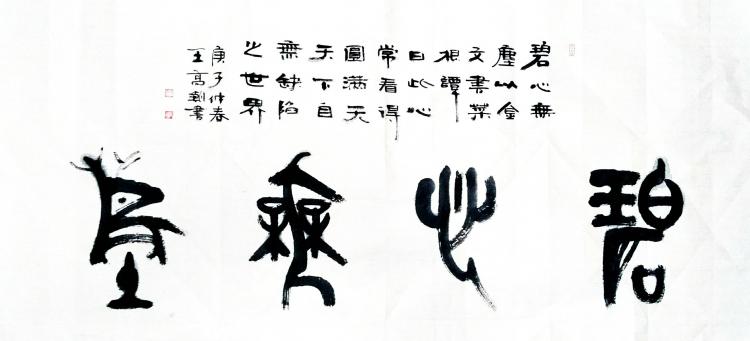 碧心無塵
碧心無
塵以金
文書菜
根譚
曰此心
常看得
圓滿天
天下自
無缺陷
之世界
庚子仲春
王高剑書